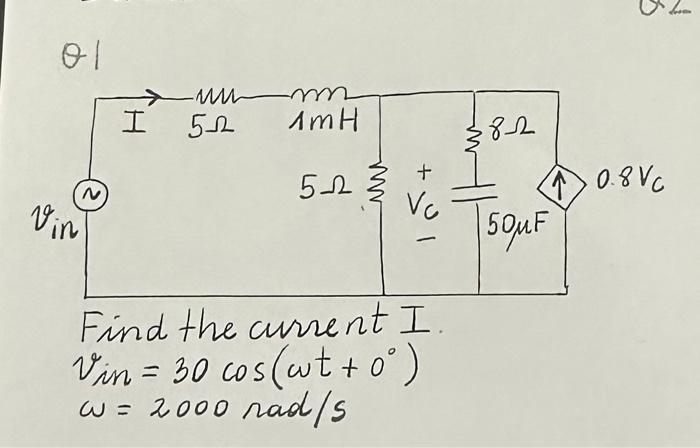 Q1
I
5Ω
1mH
8Ω
5Ω
+
Vc
-
50μF
0.8Vc
~
Vin
Find the current I.
Vin = 30 cos(ωt + 0°)
ω = 2000 rad/s